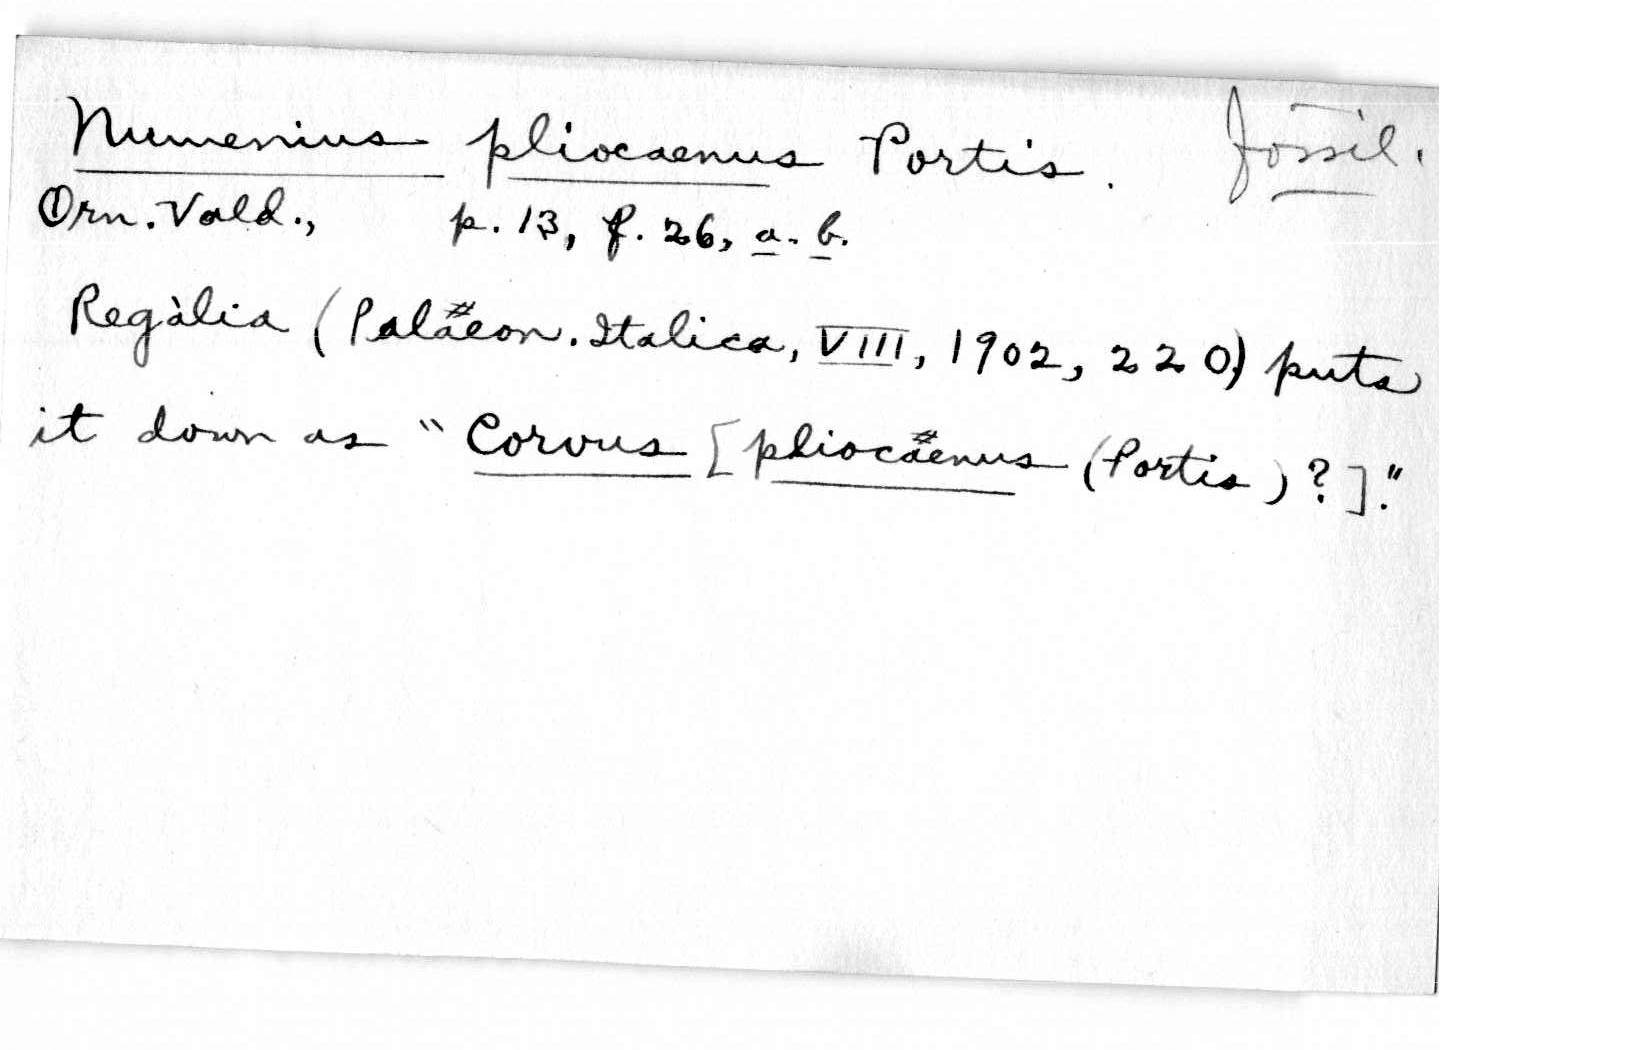 Numenius pliocaenus Portis. Fossil.
Orn. Vald., p. 13, f. 26, a. b.
Regàlia (Palaeon. Italica, VIII, 1902, 220) puts
it down as "Corvus [pliocaenus (Portis)?]."